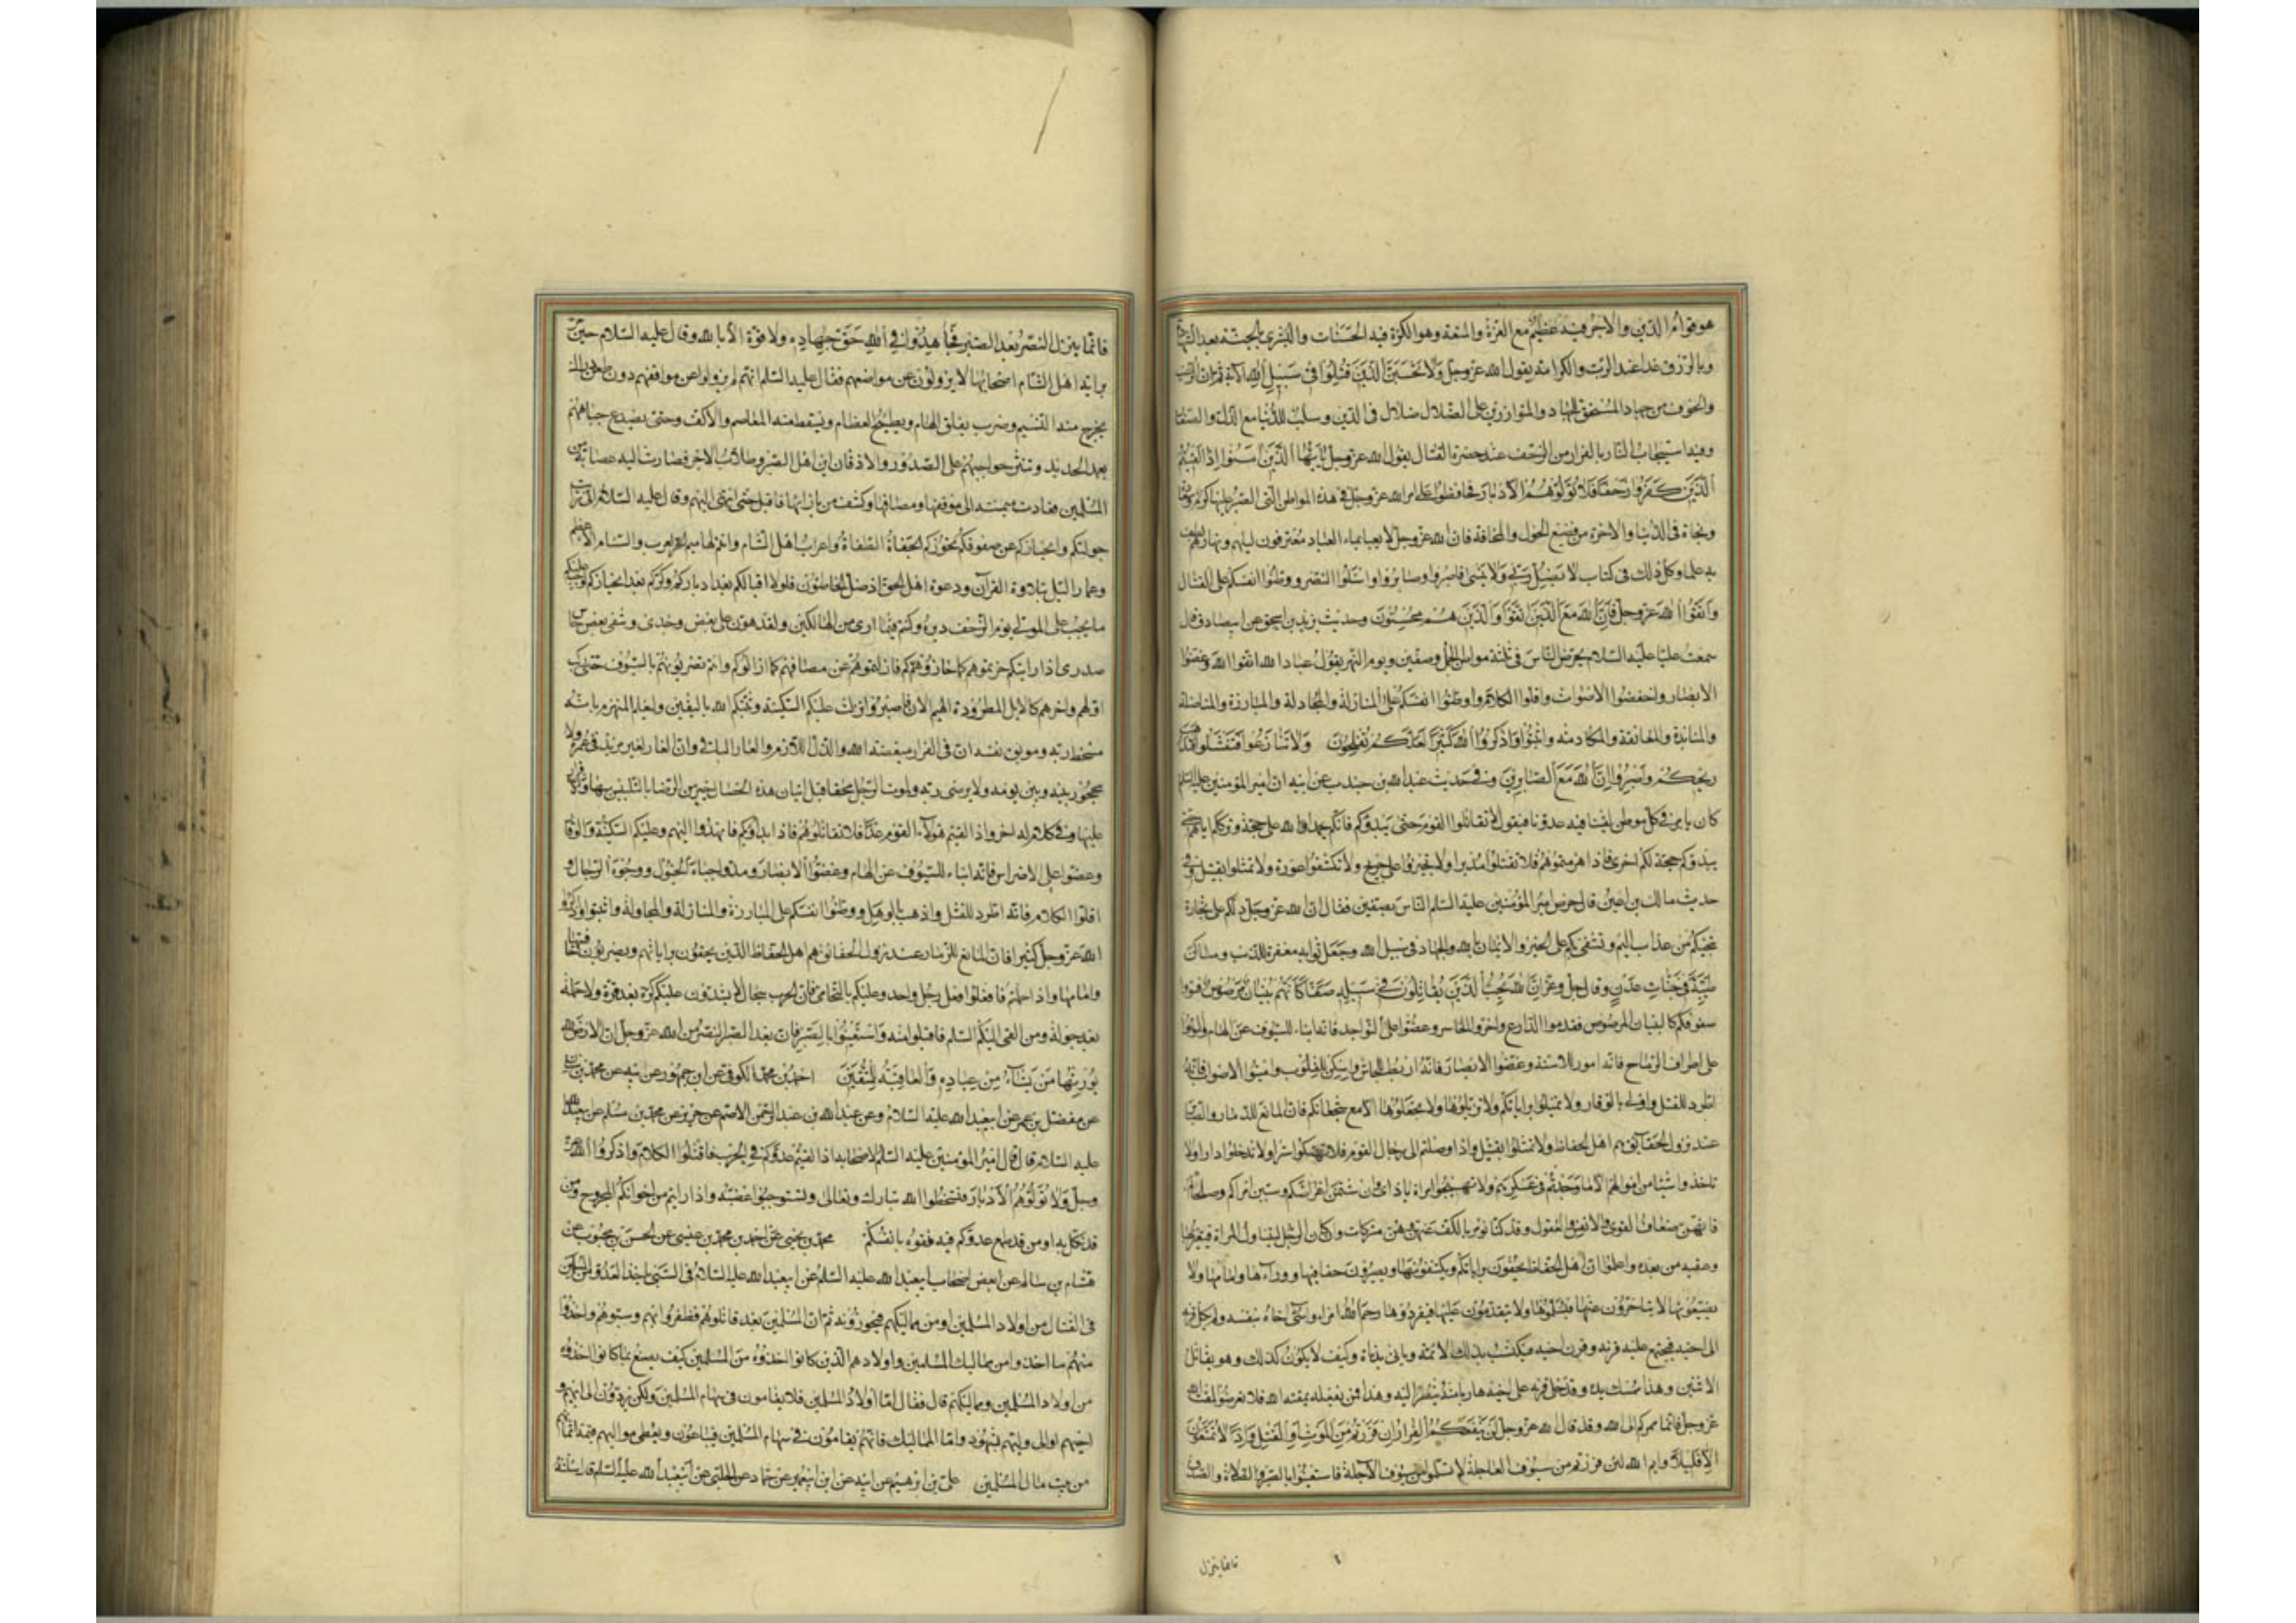 هو قوام الدين والاجر فيه عظيم مع العزة والمنعة وهو الكرة فيه الحسنات والبشرى بالجنة بعد الشهادة
وبالرزق غدا عند الرب والكرامة يقول الله عز وجل ولا تحسبن الذين قتلوا في سبيل الله الآية ثم ان الرعب
والخوف من جهاد المستحق للجهاد والمتوازرين على الضلال ضلال في الدين وسلب للدنيا مع الذل والصغار
وفيه استيجاب النار بالفرار من الزحف عند حضرة القتال يقول الله عز وجل يا ايها الذين آمنوا اذا لقيتم
الذين كفروا زحفا فلا تولوهم الادبار فحافظوا على امر الله عز وجل في هذه المواطن التي الصبر عليها كرم وسعادة
ونجاة في الدنيا والاخرة من فظيع الهول والمخافة فان الله عز وجل لا يعبا بما العباد مقترفون ليلهم ونهارهم لطف
به علما وكل ذلك في كتاب لا يضل ربي ولا ينسى فاصبروا وصابروا واسئلوا النصر ووطنوا انفسكم على القتال
واتقوا الله عز وجل فان الله مع الذين اتقوا والذين هم محسنون وحديث يزيد بن اسحق عن ابي صادق قال
سمعت عليا عليه السلام يحرض الناس في ثلثة مواطن الجمل وصفين ويوم النهر يقول عباد الله اتقوا الله وغضوا
الابصار واخفضوا الاصوات واقلوا الكلام ووطنوا انفسكم على المنازلة والمجادلة والمبارزة والمناضلة
والمنابذة والمعانقة والمكادمة واثبتوا واذكروا الله كثيرا لعلكم تفلحون ولا تنازعوا فتفشلوا وتذهب
ريحكم واصبروا ان الله مع الصابرين وفي حديث عبد الله بن جندب عن ابيه ان امير المؤمنين عليه السلم
كان يامر في كل موطن لقينا فيه عدونا فيقول لا تقاتلوا القوم حتى يبدؤكم فانكم بحمد الله على حجة وترككم اياهم حتى
يبدؤكم حجة لكم اخرى فاذا هزمتموهم فلا تقتلوا مدبرا ولا تجيزوا على جريح ولا تكشفوا عورة ولا تمثلوا بقتيل وفي
حديث مالك بن اعين قال حرض امير المؤمنين عليه السلم الناس بصفين فقال ان الله عز وجل دلكم على تجارة
تنجيكم من عذاب اليم وتشفي بكم على الخير والايمان بالله والجهاد في سبيل الله وجعل ثوابه مغفرة للذنب ومساكن
طيبة في جنات عدن وقال جل وعز ان الله يحب الذين يقاتلون في سبيله صفا كانهم بنيان مرصوص فسووا
صفوفكم كالبنيان المرصوص فقدموا الدارع واخروا الحاسر وعضوا على النواجد فانه انباء للسيوف عن الهام والتووا
على اطراف الرماح فانه امور للاسنة وغضوا الابصار فانه اربط للجاش واسكن للقلوب واميتوا الاصوات فانه
اطرد للفشل واولى بالوقار ولا تميلوا براياتكم ولا تزيلوها ولا تجعلوها الا مع شجعانكم فان المانع للذمار والصابر
عند نزول الحقايق هم اهل الحفاظ ولا تمثلوا بقتيل واذا وصلتم الى رجال القوم فلا تهتكوا سترا ولا تدخلوا دارا ولا
تاخذوا شيئا من اموالهم الا ما وجدتم في عسكرهم ولا تهيجوا امراة باذى وان شتمن اعراضكم وسببن امراءكم وصلحاءكم
فانهن ضعاف القوى والانفس والعقول وقد كنا نؤمر بالكف عنهن وهن مشركات وان كان الرجل ليتناول المراة فيعير بها
وعقبه من بعده واعلموا ان اهل الحفاظ يحفون براياتكم ويكتنفونها ويصيرون حفافيها ووراءها وامامها ولا
يضيعونها لا يتاخرون عنها فيسلموها ولا يتقدمون عليها فيفردوها رحم الله امراء واسى اخاه بنفسه ولم يكل قرنه
الى اخيه فيجتمع عليه قرنه وقرن اخيه فيكتسب بذلك اللائمة وياتي بدناءة وكيف لا يكون كذلك وهو يقاتل
الاثنين وهذا ممسك يده وقد خلى قرنه على اخيه هاربا منه ينظر اليه وهذا فمن يفعله يمقته الله فلا تعرضوا لمقت الله
عز وجل فانما ممركم الى الله وقد قال الله عز وجل لن ينفعكم الفرار ان فررتم من الموت او القتل واذا لا تمتعون
الا قليلا وايم الله لئن فررتم من سيوف العاجلة لا تسلمون من سيوف الآجلة فاستعينوا بالصبر والصلاة والصدق
فانما ينزل
فانما ينزل النصر بعد الصبر فجاهدوا في الله حق جهاده ولا قوة الا بالله وقال عليه السلام حين مر
براية اهل الشام اصحابها لا يزولون عن مواضعهم فقال عليه السلم انهم لن يزولوا عن مواقفهم دون طعن دراك
يخرج منه النسيم وضرب يفلق الهام ويطيح العظام ويسقط منه المعاصم والاكف وحتى تصدع جباههم
بعمد الحديد وتنثر حواجبهم على الصدور والاذقان اين اهل الصبر وطلاب الاجر فصارت اليه عصابة من
المسلمين فعادت ميمنته الى موقفها ومصافها وكشفت من بازائها فاقبل حتى انتهى اليهم وقال عليه السلام اني قد رايت
جولتكم وانحيازكم عن صفوفكم تحوزكم الجفاة الطغاة واعراب اهل الشام وانتم لهاميم العرب والسنام الاعظم
وعمار الليل بتلاوة القرآن ودعوة اهل الحق اذ ضل الخاطئون فلولا اقبالكم بعد ادباركم وكركم بعد انحيازكم لوجب عليكم
ما يجب على المولى يوم الزحف دبره وكنتم فيما ارى من الهالكين ولقد هون علي بعض وجدي وشفى بعض حاج
صدري اذا رايتكم حزتموهم كما حازوكم فازلتموهم عن مصافهم كما ازالوكم وانتم تضربونهم بالسيوف حتى ركب
اولهم واخرهم كالابل المطرودة الهيم الان فاصبروا نزلت عليكم السكينة وثبتكم الله باليقين وليعلم المنهزم بانه
مسخط ربه وموبق نفسه ان في الفرار موجدة الله والذل اللازم والعار الباقي وان الفار لغير مزيد في عمره ولا
محجوز بينه وبين يومه ولا يرضى ربه ولموت الرجل محقا قبل اتيان هذه الخصال خير من الرضا بالتلبيس بها والاقرار
عليها وفي كلام له اخر واذا لقيتم هؤلاء القوم غدا فلا تقاتلوهم فاذا بداوكم فانهدوا اليهم وعليكم السكينة والوقار
وعضوا على الاضراس فانه انباء للسيوف عن الهام وغضوا الابصار ومدوا جباه الخيول ووجوه الرجال و
اقلوا الكلام فانه اطرد للفشل واذهب بالوهل ووطنوا انفسكم على المبارزة والمنازلة والمجاولة واثبتوا واذكروا
الله عز وجل كثيرا فان المانع للذمار عند نزول الحقائق هم اهل الحفاظ الذين يحفون براياتهم ويضربون حافتيها
وامامها واذا حملتم فافعلوا فعل رجل واحد وعليكم بالتحامي فان الحرب سجال لا يشدون عليكم كرة بعد فرة ولا حملة
بعد جولة ومن القى اليكم السلم فاقبلوا منه واستعينوا بالصبر فان بعد الصبر النصر من الله عز وجل ان الارض لله
يورثها من يشاء من عباده والعاقبة للمتقين احمد بن محمد الكوفي عن ابن جمهور عن ابيه عن محمد بن سنان
عن مفضل بن عمر عن ابي عبد الله عليه السلام وعن عبد الله بن عبد الرحمن الاصم عن حريز عن محمد بن مسلم عن ابي عبد الله
عليه السلام قال قال امير المؤمنين عليه السلم لاصحابه اذا لقيتم عدوكم في الحرب فاقلوا الكلام واذكروا الله عز
وجل ولا تولوهم الادبار فتسخطوا الله تبارك وتعالى وتستوجبوا غضبه واذا رايتم من اخوانكم المجروح ومن
قد نكل به او من قد طمع عدوكم فيه فقوه بانفسكم محمد بن يحيى عن احمد بن محمد بن عيسى عن الحسن بن محبوب عن
هشام بن سالم عن بعض اصحاب ابي عبد الله عليه السلم عن ابي عبد الله عليه السلام في السبي ياخذ العدو من المسلمين
في القتال من اولاد المسلمين او من مماليكهم فيحوزونه ثم ان المسلمين بعد قاتلوهم فظفروا بهم وسبوهم واخذوا
منهم ما اخذوا من مماليك المسلمين واولادهم الذين كانوا اخذوه من المسلمين كيف يصنع بما كانوا اخذوه
من اولاد المسلمين ومماليكهم قال فقال اما اولاد المسلمين فلا يقامون في سهام المسلمين ولكن يردون الى ابيهم و
اخيهم او الى وليهم بشهود واما المماليك فانهم يقامون في سهام المسلمين فيباعون ويعطى مواليهم قيمة اثمانهم
من بيت مال المسلمين علي بن ابرهيم عن ابيه عن ابن ابي عمير عن حماد عن الحلبي عن ابي عبد الله عليه السلم قال سئلته